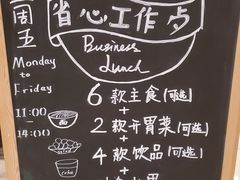 周五
省心工作点
Business
Lunch
Monday
to
Friday
11:00
14:00
6款主食(可选)
+
2款开胃菜(可选)
+
4款饮品(可选)
+